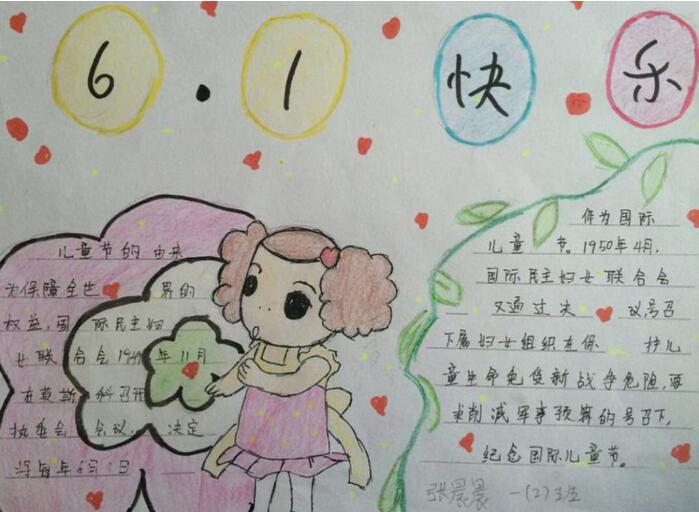 6.1快乐
儿童节的由来
为保障全世界的
权益,国际民主妇
女联合会1949年11月
在莫斯科召开
执委会会议,决定
将每年6月1日
作为国际
儿童节。1950年4月,
国际民主妇女联合会
又通过决议号召
下属妇女组织在保护儿
童生命免受新战争危险,要
求削减军事预算的号召下,
纪念国际儿童节。
张晨晨 一(2)班